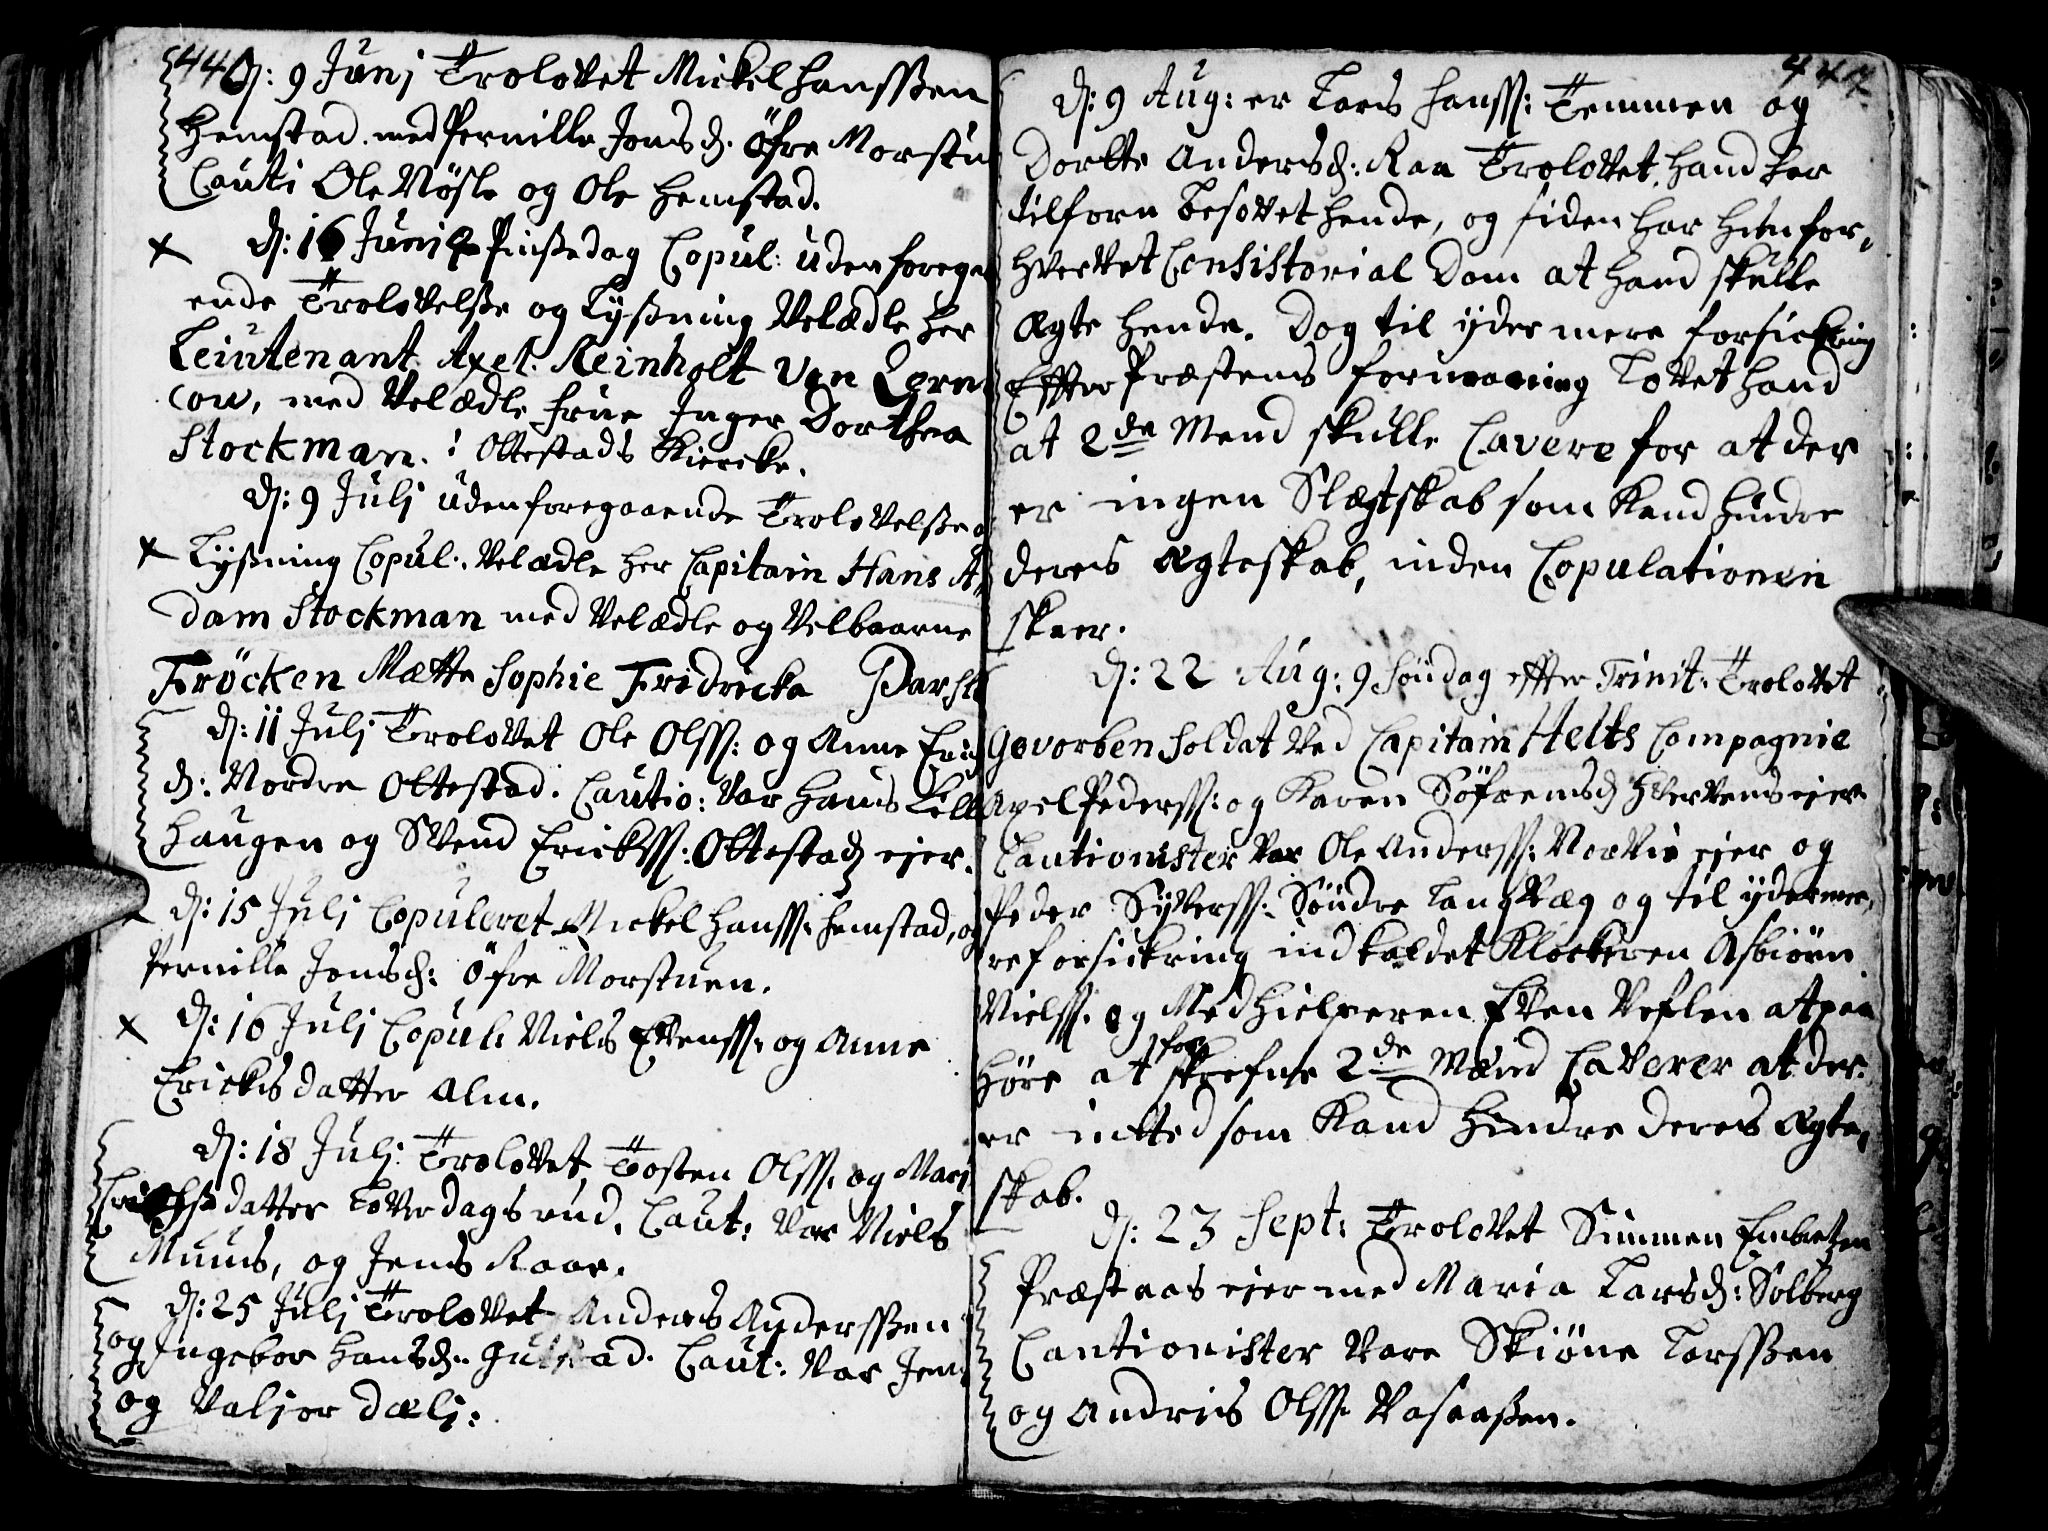 446
d: 9 Junj Trolovet Mickel Hansßen
Hemstad. med Pernille Jonsd. Öfre Morstu
Cauti Ole Nösle og Ole Hemstad.
d: 16 Juni 2 Pinßedag Copul: uden forega
ende Trolovelße og Lyßning Velædle Her
Leiutenant Axel Reinholt Von
cow, med Velædle Frue Inger Dorthea
Stockman. : Ottestads Kiercke.
d: 9 Julj uden foregaaende Trolovelße o
Lyßning Copul. Velædle Her Capitain Hans A,
dam Stockman med Velædle og Velbaarne
Fröcken Mætte Sophie Fridricka Barst
d: 11 Julj Trolovet Ole Olss: og Anne Eric
d: Nordre Ottestad. Cautio: Var Hans Lille
Haugen og Svend Erickss: Ottestad ejer.
d: 15 Julj Copuleret Mickel Hanss: Hemstad, og
Pernille Jonsd: Öfre Morstuen.
d: 16 Julj Copul: Niels Evenss: og Anne
Ericksdatter Alm.
d: 18 Julj Trolovet Tosten Olss. og Mari
datter Loverdagsrud. Caut: Var Niels
Muus, og Jens Raar.
d: 25 Julj Trolovet Anders Andersßen
og Ingebor Hansd. Caut: Var Jen
og Valjor Dælj:
447
d: 9 Aug: er Lars Hanss: Temmen og
Dorte Andersd: Raa Trolovet. Hand har
tilforn besovet hende, og siden har hun for,
hvervet Consistorial Dom at hand skulle
ægte hende. Dog til ydermere forsickring
Effter Præstens formaning lovet hand
at 2de Mend skulle Cavere for at der
er ingen Slægtskab som kand hindre
deres ægteskab, inden Copulationen
skeer.
d: 22 Aug: 9 Söndag effter Trinit: Trolovet
Gevorben Soldat ved Capitain Helts Compagnie
Axel Pederss: og Karen Söfrensd Hververs ejer
Cautionister Var Ole Anderss: Norvie ejer og
Peder Syverss: Söndre Langvæg og til ydermee,
re forsickring indkaldet Klockeren Asbiörn
Nielss. og Medhielperen Even Veflen at paa
höre at forskrefne 2de Mænd Caverer at der
er intted som kand hindre deres Ægte,
skab.
d: 23 Sept: Trolovet Simmen Embretzen
Præstaas ejer med Maria Larsd: Solberg
Cautionister Vare Skiöne Larsßen
og Andris Olss: Vasaaßen.